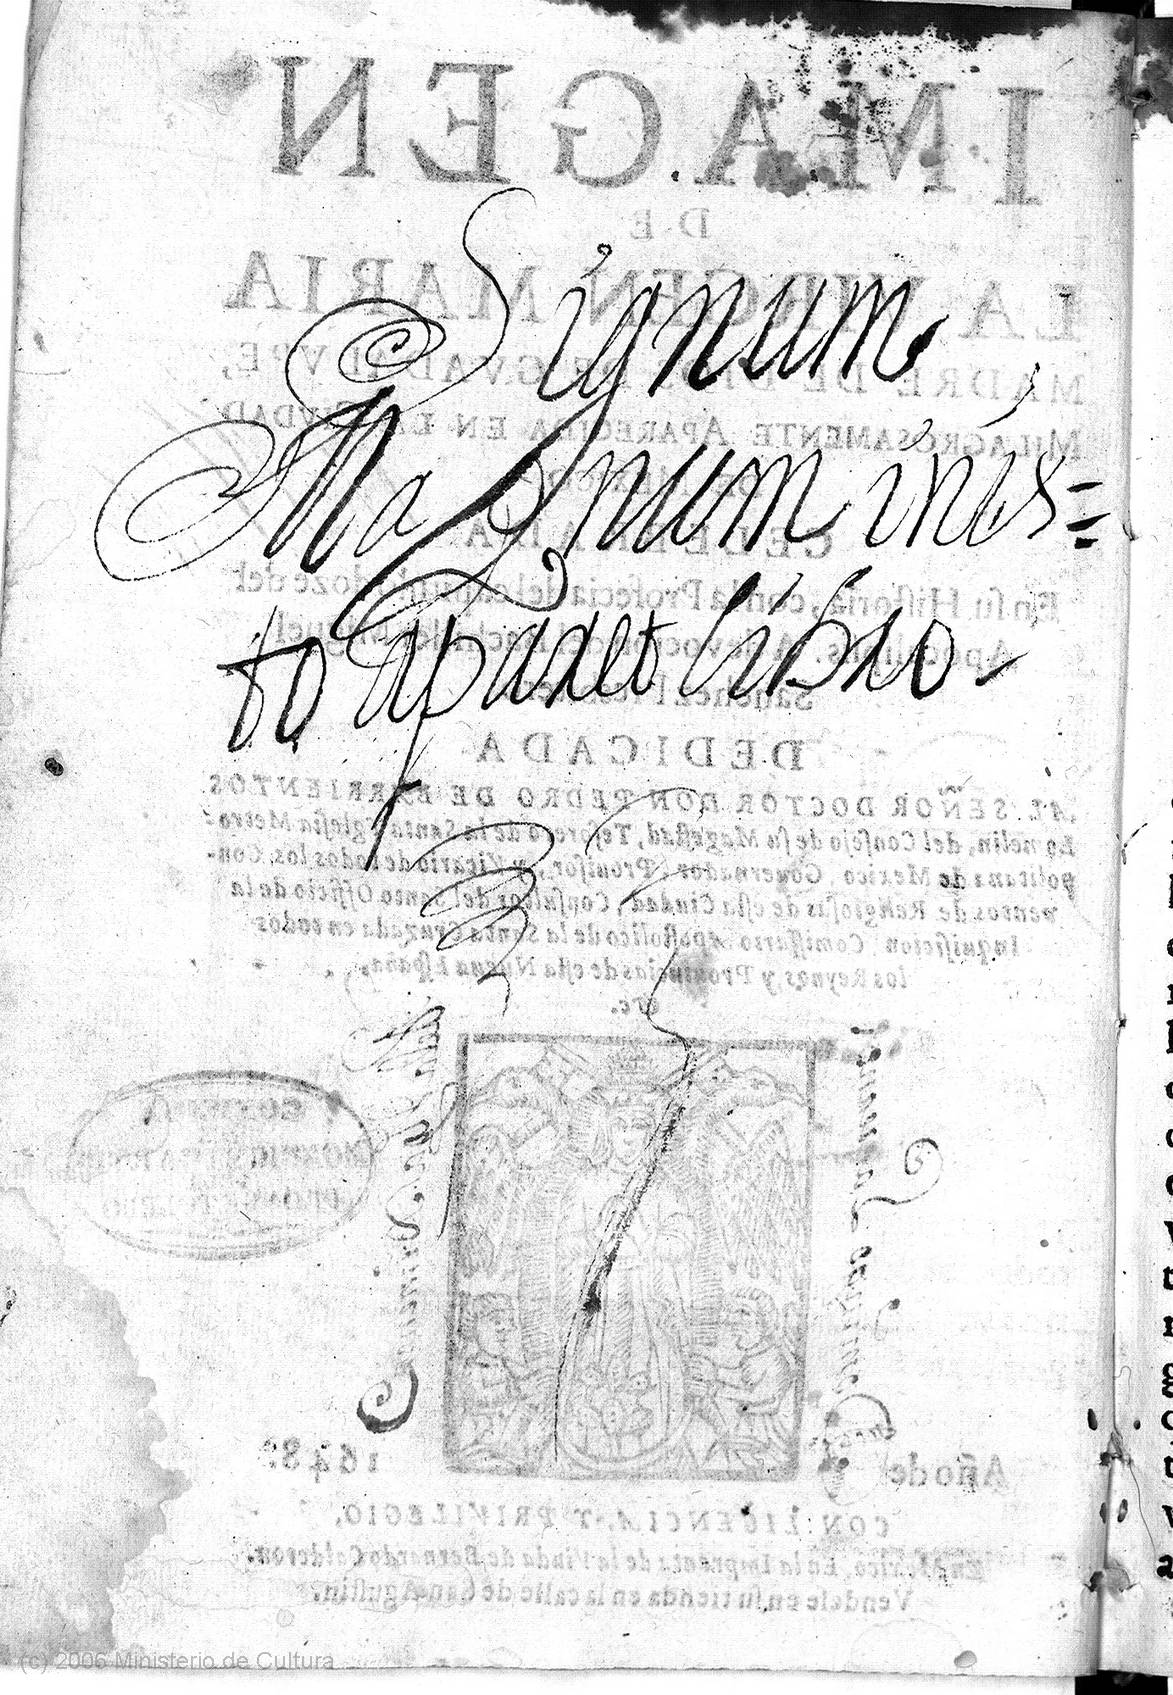 IMAGEN
DE
LA VIRGEN MARIA
MADRE DE DIOS DE GVADALVPE,
MILAGROSAMENTE APARECIDA EN LA CIVDAD
Signum
Magnum inis=
to aparet libro
En su Historia, con la Profecia del capitulo doze del
Apocalipsis. A devocion del Bachiller Miguel
Sanchez
DEDICADA
AL SEÑOR DOCTOR DON PEDRO DE BARRIENTOS
Lomelin, del Consejo de su Magestad, Tesorero de la Santa Iglesia Metro-
politana de Mexico, Gouernador, Prouisor, y Vicario de todos los Con-
ventos de Religiosas de esta Ciudad, Consultor del Santo Officio de la
Inquisicion, Comissario Apostolico de la Santa Cruzada en todos
los Reynos, y Prouincias de esta Nueua España,
etc.
Año de 1648.
CON LICENCIA, Y PRIVILEGIO,
En Mexico, En la Imprenta de la Viuda de Bernardo Calderon.
Vendese en su tienda en la calle de San Agustin.
(c) 2006 Ministerio de Cultura